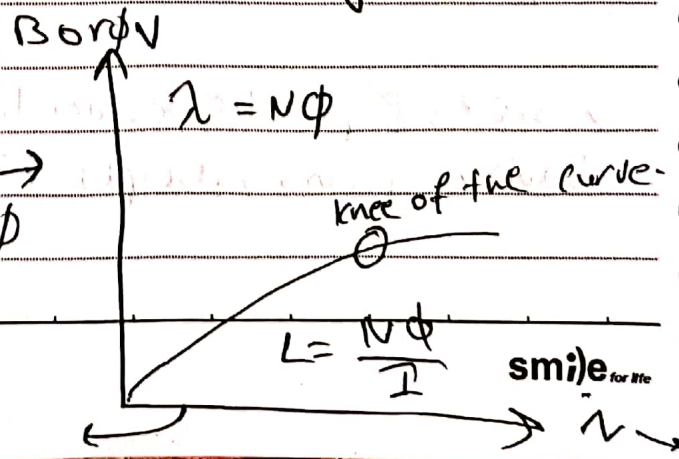 B or φ V
λ = Nφ
φ
knee of the curve.
L = Nφ / I
smile for life